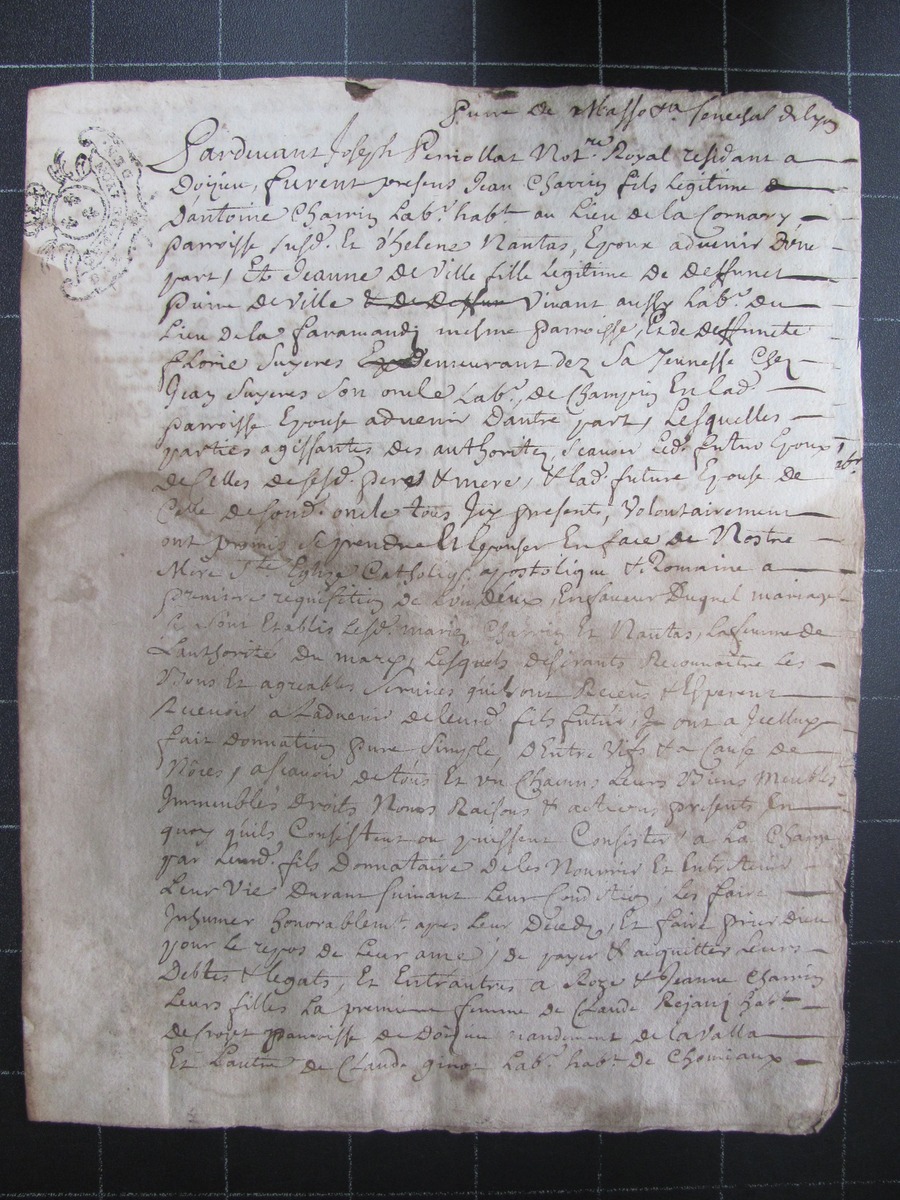 Pierre de Masso &a senechal de lyon
Pardevant Joseph Perriollat Not.re Royal residant a
Doizieu, furent presens Jean Charrin fils legitime
D'antoine Charrin Lab.r hab.t au Lieu de la Cornary
parroisse susd. Et d'helene Nantas, Epoux advenir d'une
part, Et Jeanne de Ville fille legitime de deffunct
pierre de Ville Vivant aussy Lab.r du
Lieu de la faramandy mesme parroisse, Et de deffuncte
florie Suyeres demeurant dez Sa Jeunesse Chez
Jean Suyeres Son oncle Lab.r de Champin En lad.
parroisse Epouse advenir D'autre part, Lesquelles
parties agissantes des authoritez, scavoir led. futur Epoux
de Celles de sesd. peres & mere, & lad. future Epouse de
Celle de sond. oncle tous Icy presents, Volontairement
ont promis se prendre Et Epouser En face de Nostre
Mere S.te Eglise Catholiq. apostolique & Romaine a
premiere requisition de L'un deux, En faveur Duquel mariage
se sont Etablis Lesd. mariez Charrin Et Nantas, La femme de
L'authorité Du mary, Lesquels desirants Reconnaitre Les
Bons Et agreables Services quils ont Receus & Esperent
Recevoir a L'advenir de leurd. fils futur, Ils ont a Icelluy
fait donnation pure Simple, D'Entre Vifs & a Cause de
Noces, a scavoir de tous Et un Chacuns Leurs Biens Meubles
Immeubles Droits Noms Raisons & actions presents En
quoy quils Consistent ou puissent Consister, a La Charge
par Leurd. fils Donnataire de les Nourrir Et Entretenir
Leur Vie Durant suivant Leur Condition, Les faire
Inhumer honorablem.t apres Leur Decedz, Et faire prier Dieu
pour Le repos de Leur ame, de payer & acquitter Leurs
Debtes & legats, Et Entrautres a Roze & Jeanne Charrin
Leurs filles La premiere femme de Claude Rejany hab.t
parroisse de Doizieu mandement de la Valla
Et L'autre de Claude ginot Lab.r hab.t de Chomiaux